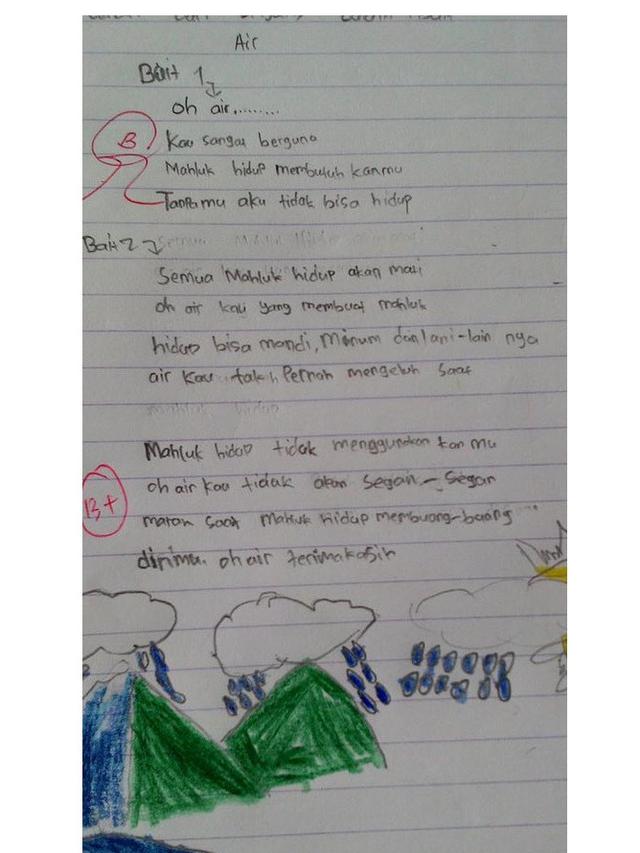 Air
Bait 1
oh air.........
B
Kau sangat berguna
Mahluk hidup membutuh kanmu
Tanpamu aku tidak bisa hidup
Bait 2
Semua Mahluk hidup akan mati
oh air kau yang membuat mahluk
hidup bisa mandi, Minum dan lani-lain nya
air kau takh Pernah mengeluh saat
mahluk hidup
Mahluk hidup tidak menggunakan kan mu
oh air kau tidak akan Segan-Segan
B+
maran saat Mahluk hidup membuang-buang
dirimu. oh air terimakasih